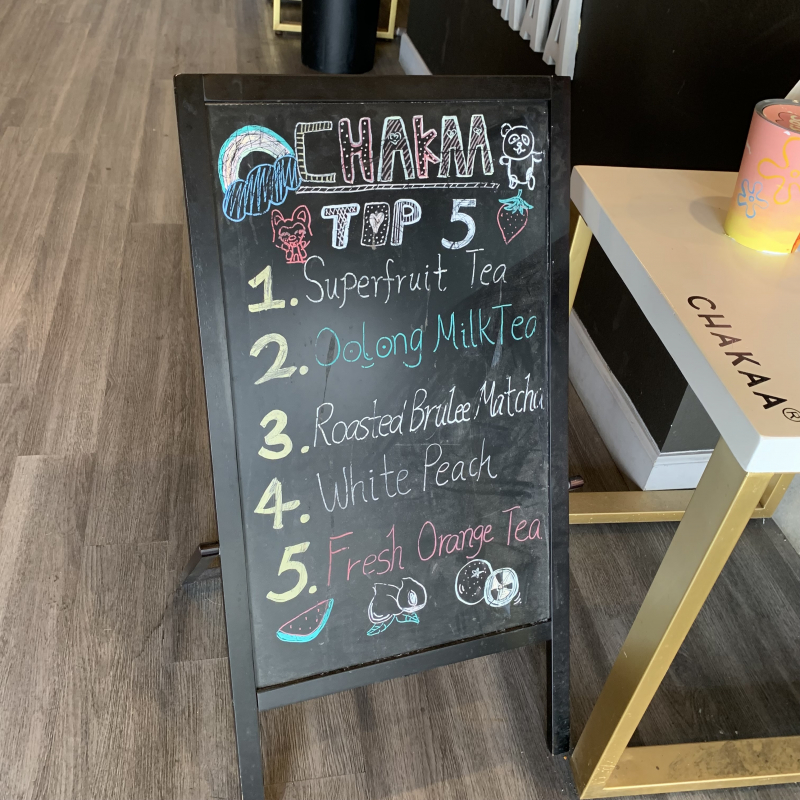 CHAKAA
TOP 5
1. Superfruit Tea
2. Oolong Milk Tea
3. Roasted Brulee Matcha
4. White Peach
5. Fresh Orange Tea
CHAKAA®